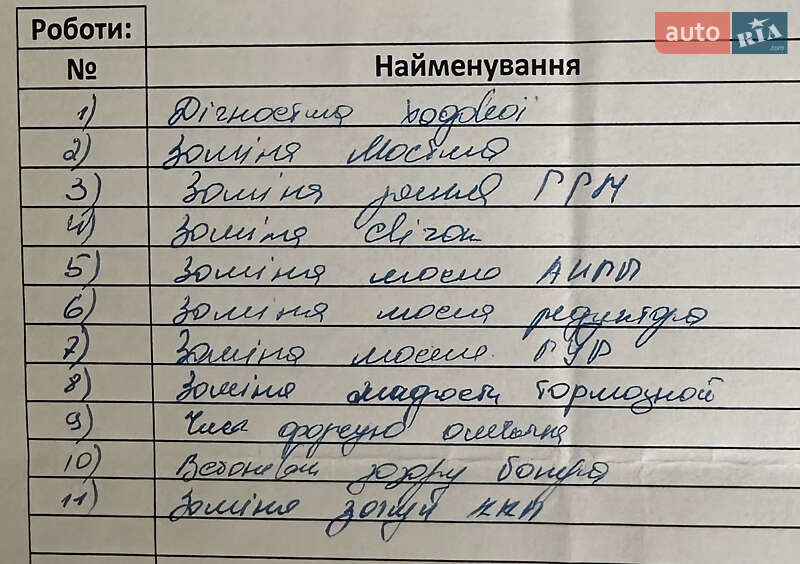 Роботи:
auto RIA .com
№ Найменування
1) Дігностика ходової
2) Заміна Мастила
3) Заміна ремня ГРМ
4) Заміна свічок
5) Заміна масла АКПП
6) Заміна масла редуктора
7) Заміна масла ГУР
8) Заміна жидкости тормозной
9) Чистка форсунок омивача
10) зазору бампера
11) Заміна